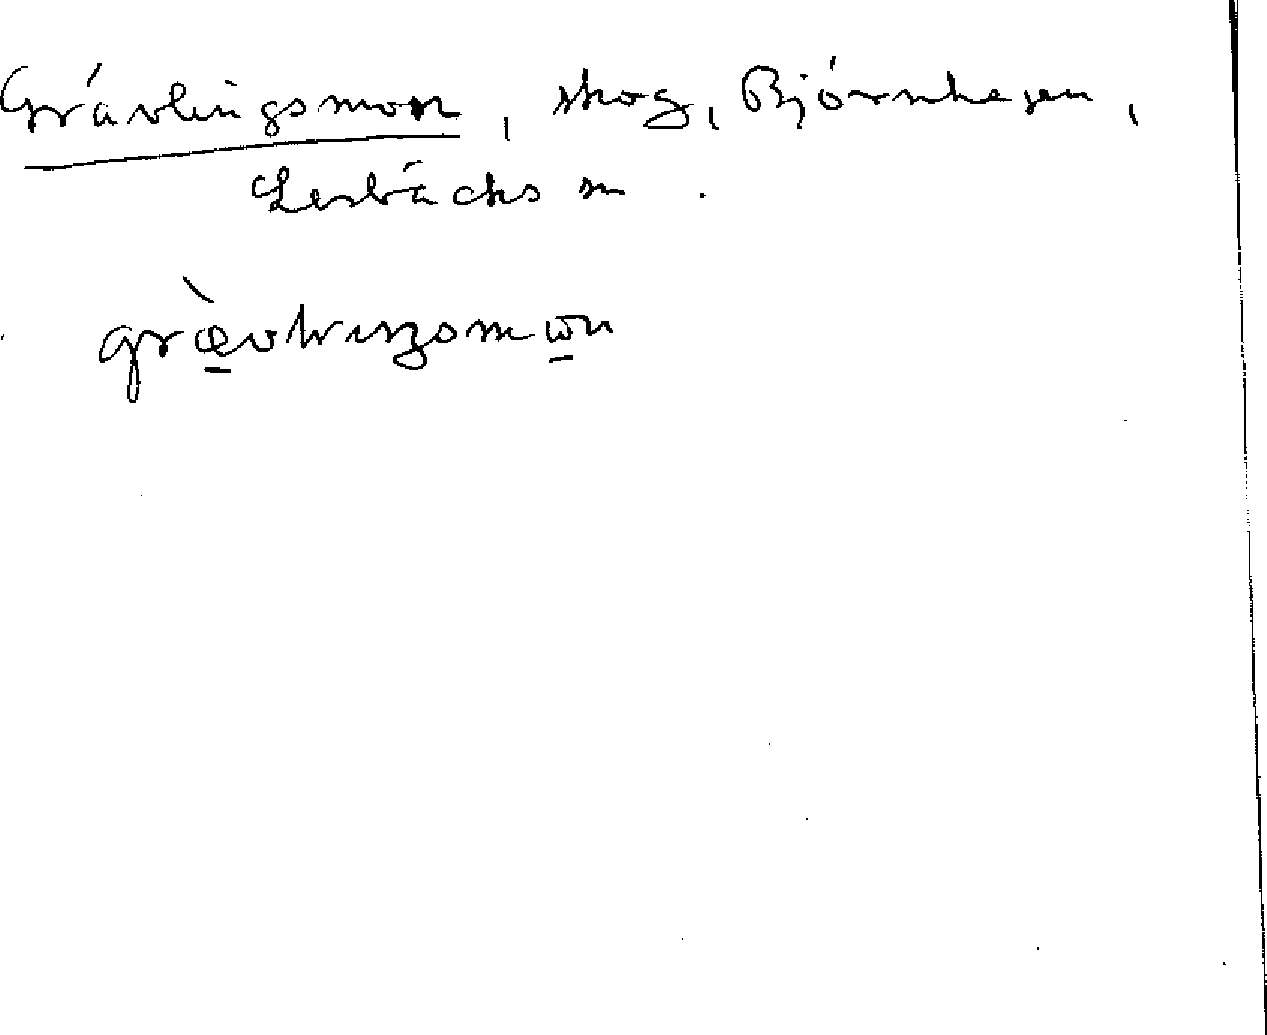 Grávlingsmon, skog, Bjórnhagen,
Lerbácks sn.
grævliŋsomωn